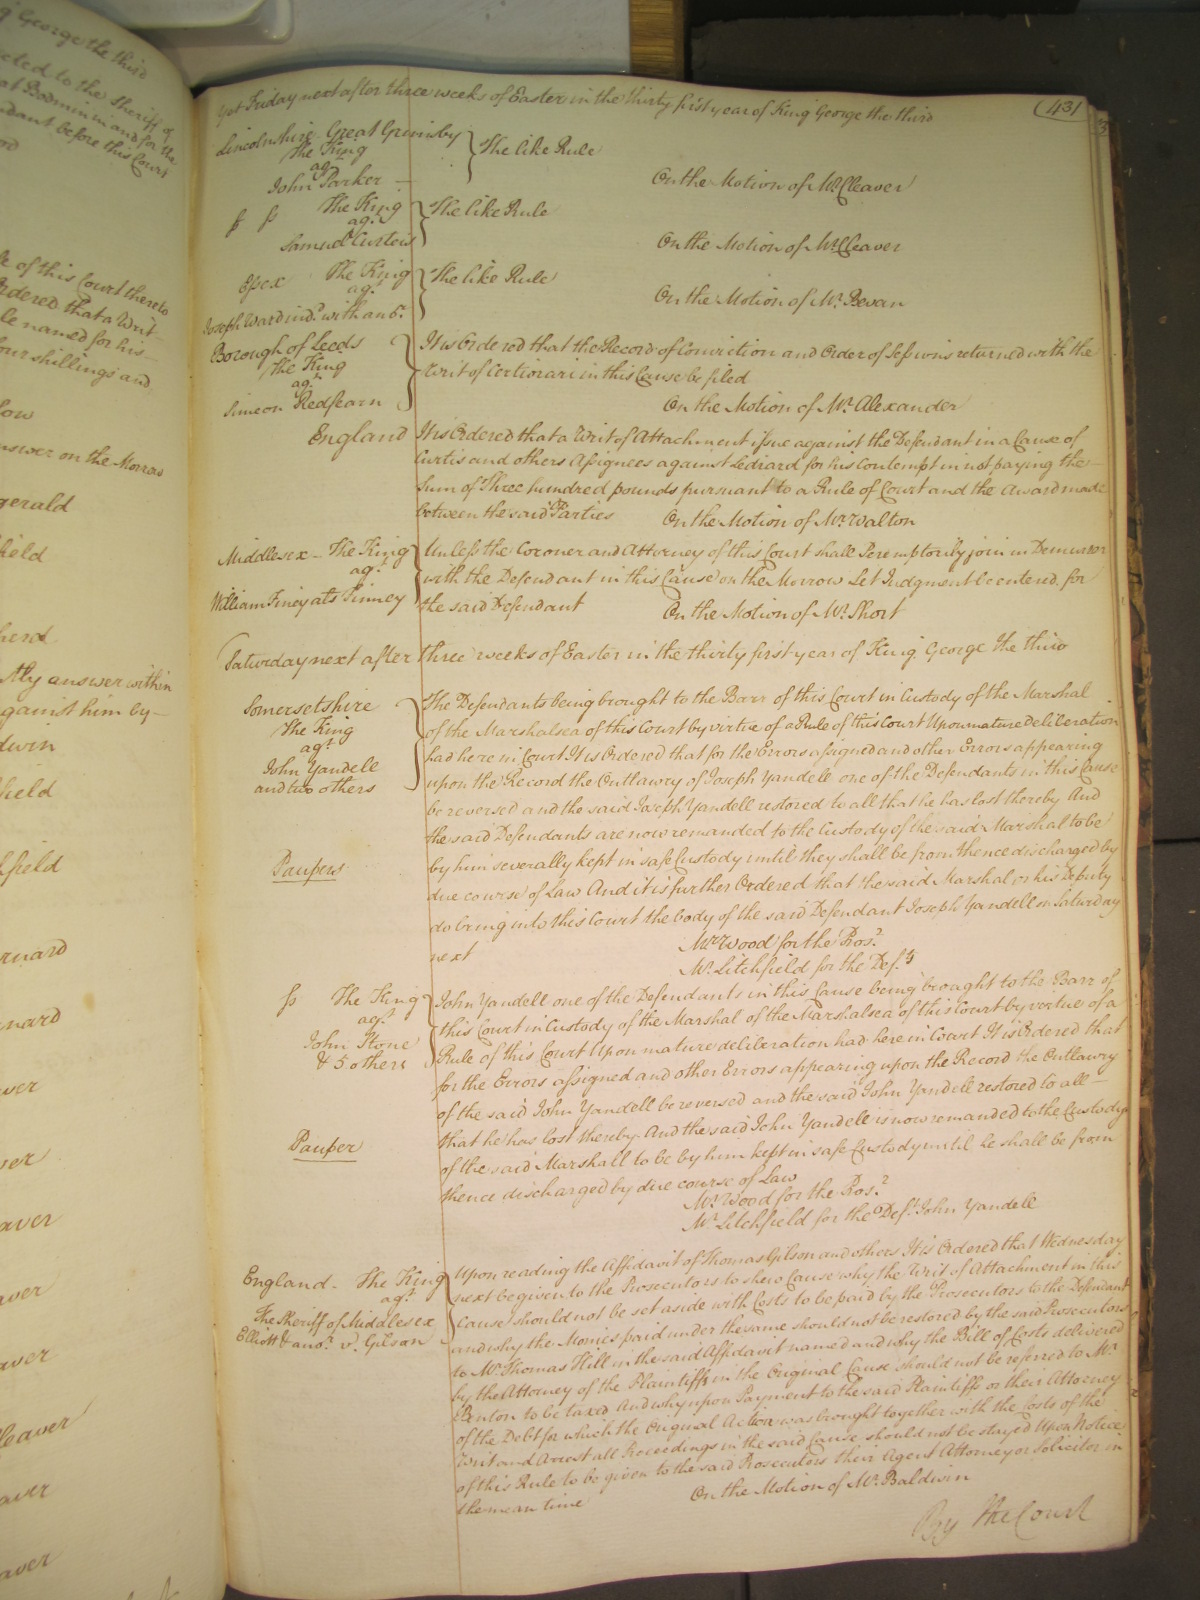 g George the third
ected to the Sheriff of
at Bodmin in and for the
ndant before this Court
ord
le of this Court thereto
rdered that a Writ
le named for his
four shillings and
low
nswer on the Morrow
gerald
field
herd
tly answer within
gainst him by
dwin
field
hfield
rnard
nard
ver
ver
aver
aver
aver
leaver
aver
aver
Yet Friday next after three weeks of Easter in the thirty first year of King George the third
(43)
Lincolnshire Great Grimsby
The King
agt
John Parker
The like Rule
On the Motion of Mr Cleaver
ss ss The King
agt
Samuel Curtois
The like Rule
On the Motion of Mr Cleaver
Essex The King
agt
Joseph Ward indd with anor
The like Rule
On the Motion of Mr Bevan
Borough of Leeds
The King
agt
Simeon Redfearn
It is Ordered that the Record of Conviction and Order of Sessions returned with the
Writ of Certiorari in this Cause be filed
On the Motion of Mr Alexander
England
It is Ordered that a Writ of Attachment issue against the Defendant in a Cause of
Curtis and others Assignees against Lediard for his Contempt in not paying the
Sum of Three hundred pounds pursuant to a Rule of Court and the Award made
between the said Parties On the Motion of Mr Walton
Middlesex The King
agt
William Finey ats Pinney
Unless the Coroner and Attorney of this Court shall Peremptorily join in Demurrer
with the Defendant in this Cause on the Morrow Let Judgment be entered for
the said Defendant On the Motion of Mr Short
Saturday next after three weeks of Easter in the thirty first year of King George the third
Somersetshire
The King
agt
John Yandell
and two others
Paupers
The Defendants being brought to the Barr of this Court in Custody of the Marshal
of the Marshalsea of this Court by virtue of a Rule of this Court Upon mature deliberation
had here in Court It is Ordered that for the Errors assigned and other Errors appearing
upon the Record the Outlawry of Joseph Yandell one of the Defendants in this Cause
be reversed and the said Joseph Yandell restored to all that he has lost thereby And
the said Defendants are now remanded to the Custody of the said Marshal to be
by him severally kept in safe Custody until they shall be from thence discharged by
due course of Law And it is further Ordered that the said Marshal or his Deputy
do bring into this Court the body of the said Defendant Joseph Yandell on Saturday
next
Mr Wood for the Prosr
Mr Litchfield for the Defts
ss The King
agt
John Stone
& 5 others
Pauper
John Yandell one of the Defendants in this Cause being brought to the Barr of
this Court in Custody of the Marshal of the Marshalsea of this Court by vertue of a
Rule of this Court Upon mature deliberation had here in Court It is Ordered that
for the Errors assigned and other Errors appearing upon the Record the Outlawry
of the said John Yandell be reversed and the said John Yandell restored to all
that he has lost thereby And the said John Yandell is now remanded to the Custody
of the said Marshall to be by him kept in safe Custody until he shall be from
thence discharged by due course of Law
Mr Wood for the Prosr
Mr Litchfield for the Deft John Yandell
England The King
agt
The Sheriff of Middlesex
Elliott & anor v. Gilson
Upon reading the Affidavit of Thomas Gilson and others It is Ordered that Wednesday
next be given to the Prosecutors to shew Cause why the Writ of Attachment in this
Cause should not be set aside with Costs to be paid by the Prosecutors to the Defendant
and why the Monies paid under the same should not be restored by the said Prosecutors
to Mr Thomas Hill in the said Affidavit named and why the Bill of Costs delivered
by the Attorney of the Plaintiffs in the Original Cause should not be referred to Mr
Benton to be taxed And why upon Payment to the said Plaintiffs or their Attorney
of the Debt for which the Original Action was brought together with the Costs of the
Writ and Arrest all Proceedings in the said Cause should not be stayed Upon Notice
of this Rule to be given to the said Prosecutors their Agent Attorney or Solicitor in
the mean time On the Motion of Mr Baldwin
By the Court